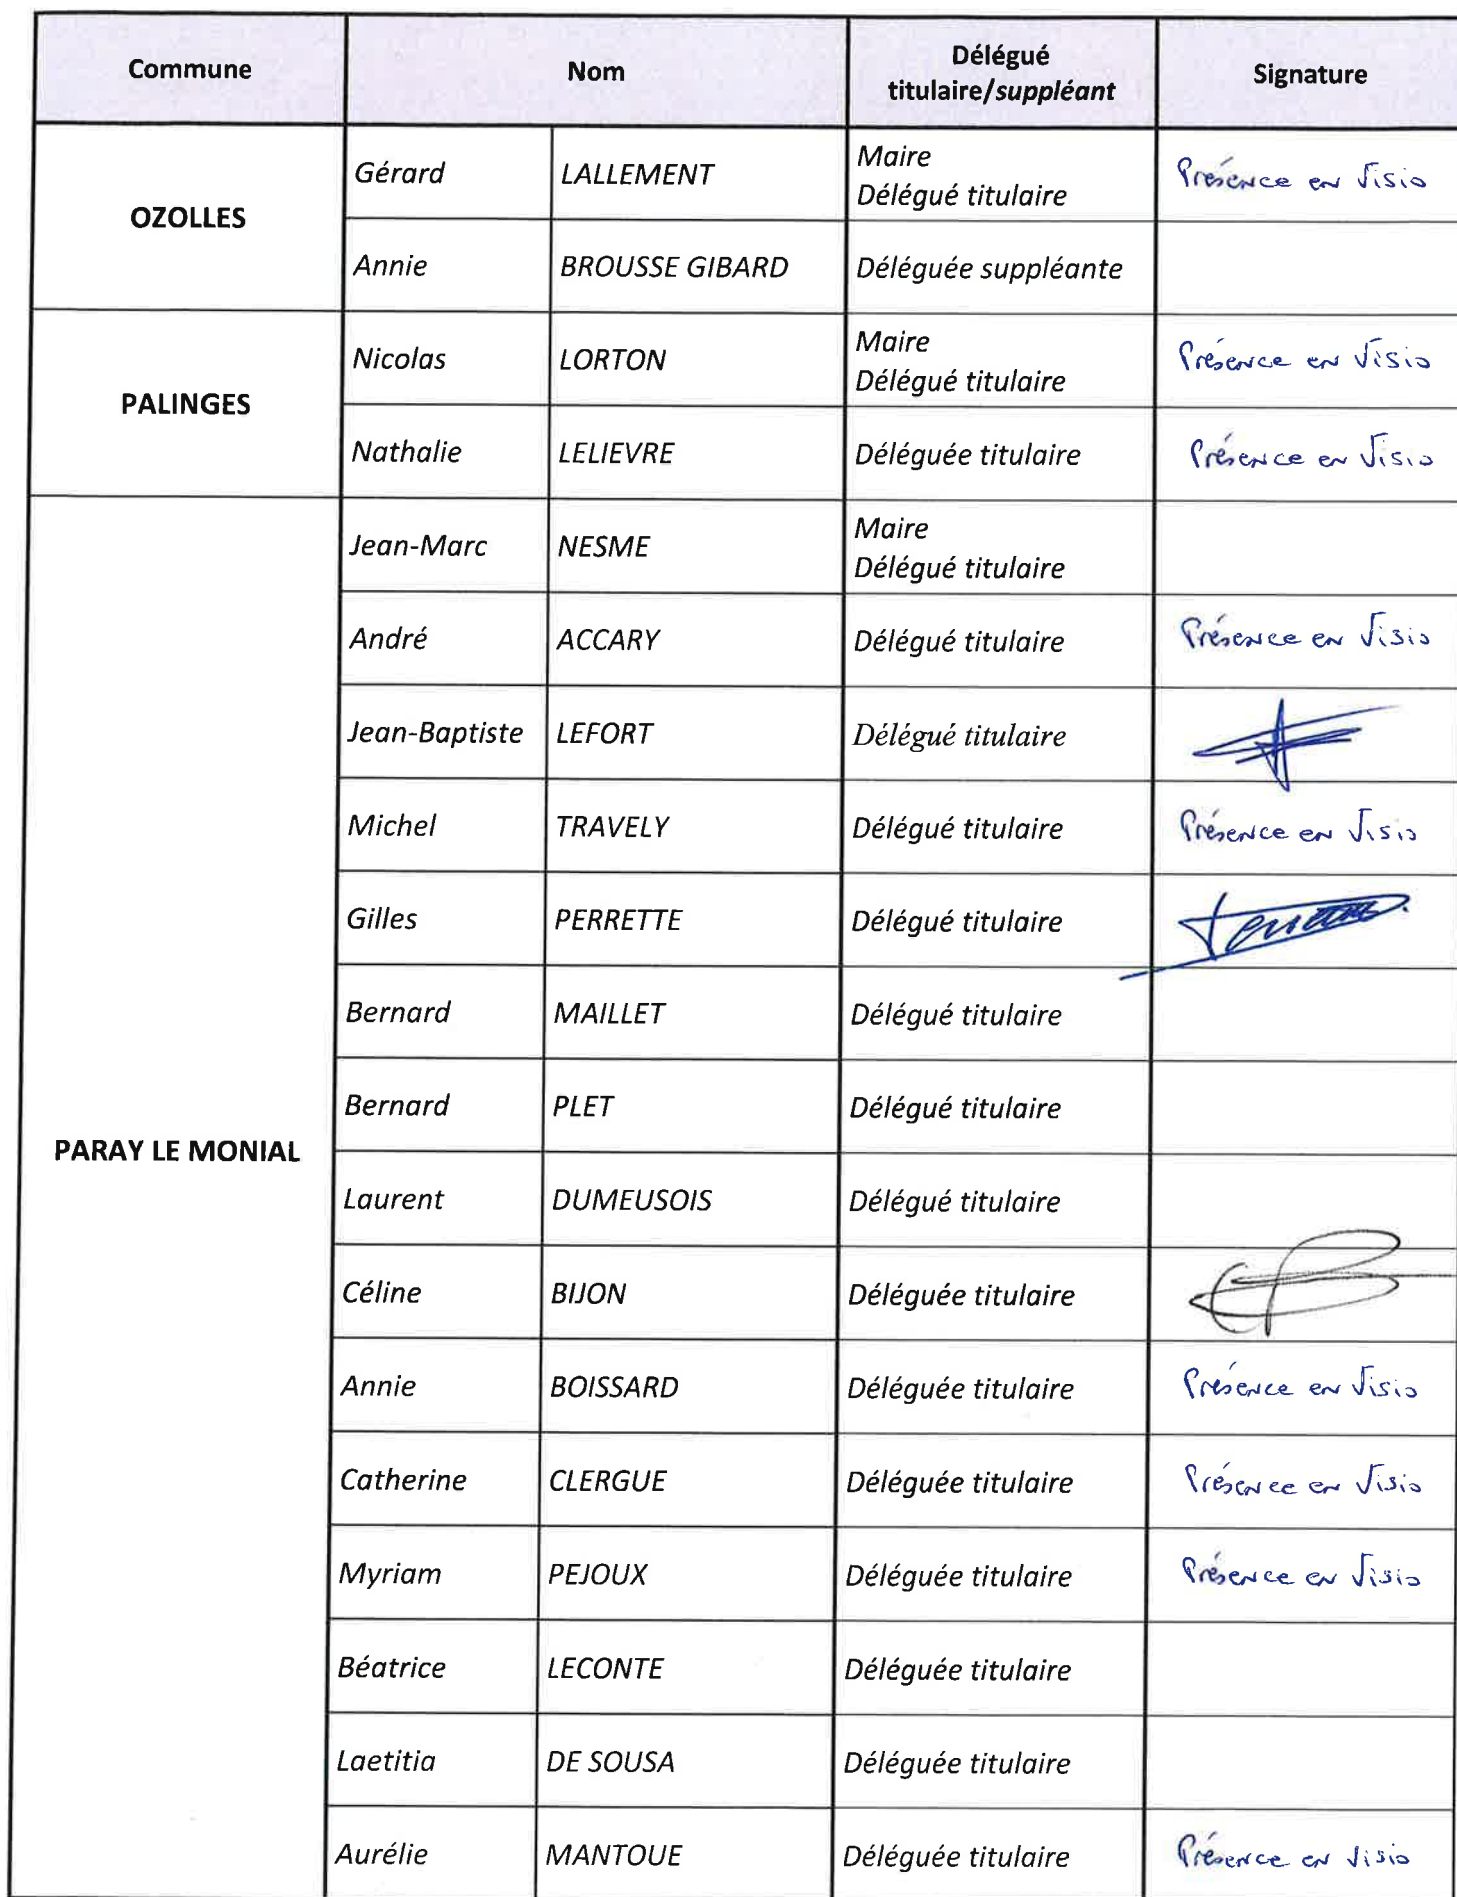 Commune Nom Délégué titulaire/suppléant Signature
OZOLLES
Gérard LALLEMENT Maire
Délégué titulaire Présence en Visio
Annie BROUSSE GIBARD Déléguée suppléante
PALINGES
Nicolas LORTON Maire
Délégué titulaire Présence en Visio
Nathalie LELIEVRE Déléguée titulaire Présence en Visio
PARAY LE MONIAL
Jean-Marc NESME Maire
Délégué titulaire
André ACCARY Délégué titulaire Présence en Visio
Jean-Baptiste LEFORT Délégué titulaire
Michel TRAVELY Délégué titulaire Présence en Visio
Gilles PERRETTE Délégué titulaire
Bernard MAILLET Délégué titulaire
Bernard PLET Délégué titulaire
Laurent DUMEUSOIS Délégué titulaire
Céline BIJON Déléguée titulaire
Annie BOISSARD Déléguée titulaire Présence en Visio
Catherine CLERGUE Déléguée titulaire Présence en Visio
Myriam PEJOUX Déléguée titulaire Présence en Visio
Béatrice LECONTE Déléguée titulaire
Laetitia DE SOUSA Déléguée titulaire
Aurélie MANTOUE Déléguée titulaire Présence en Visio